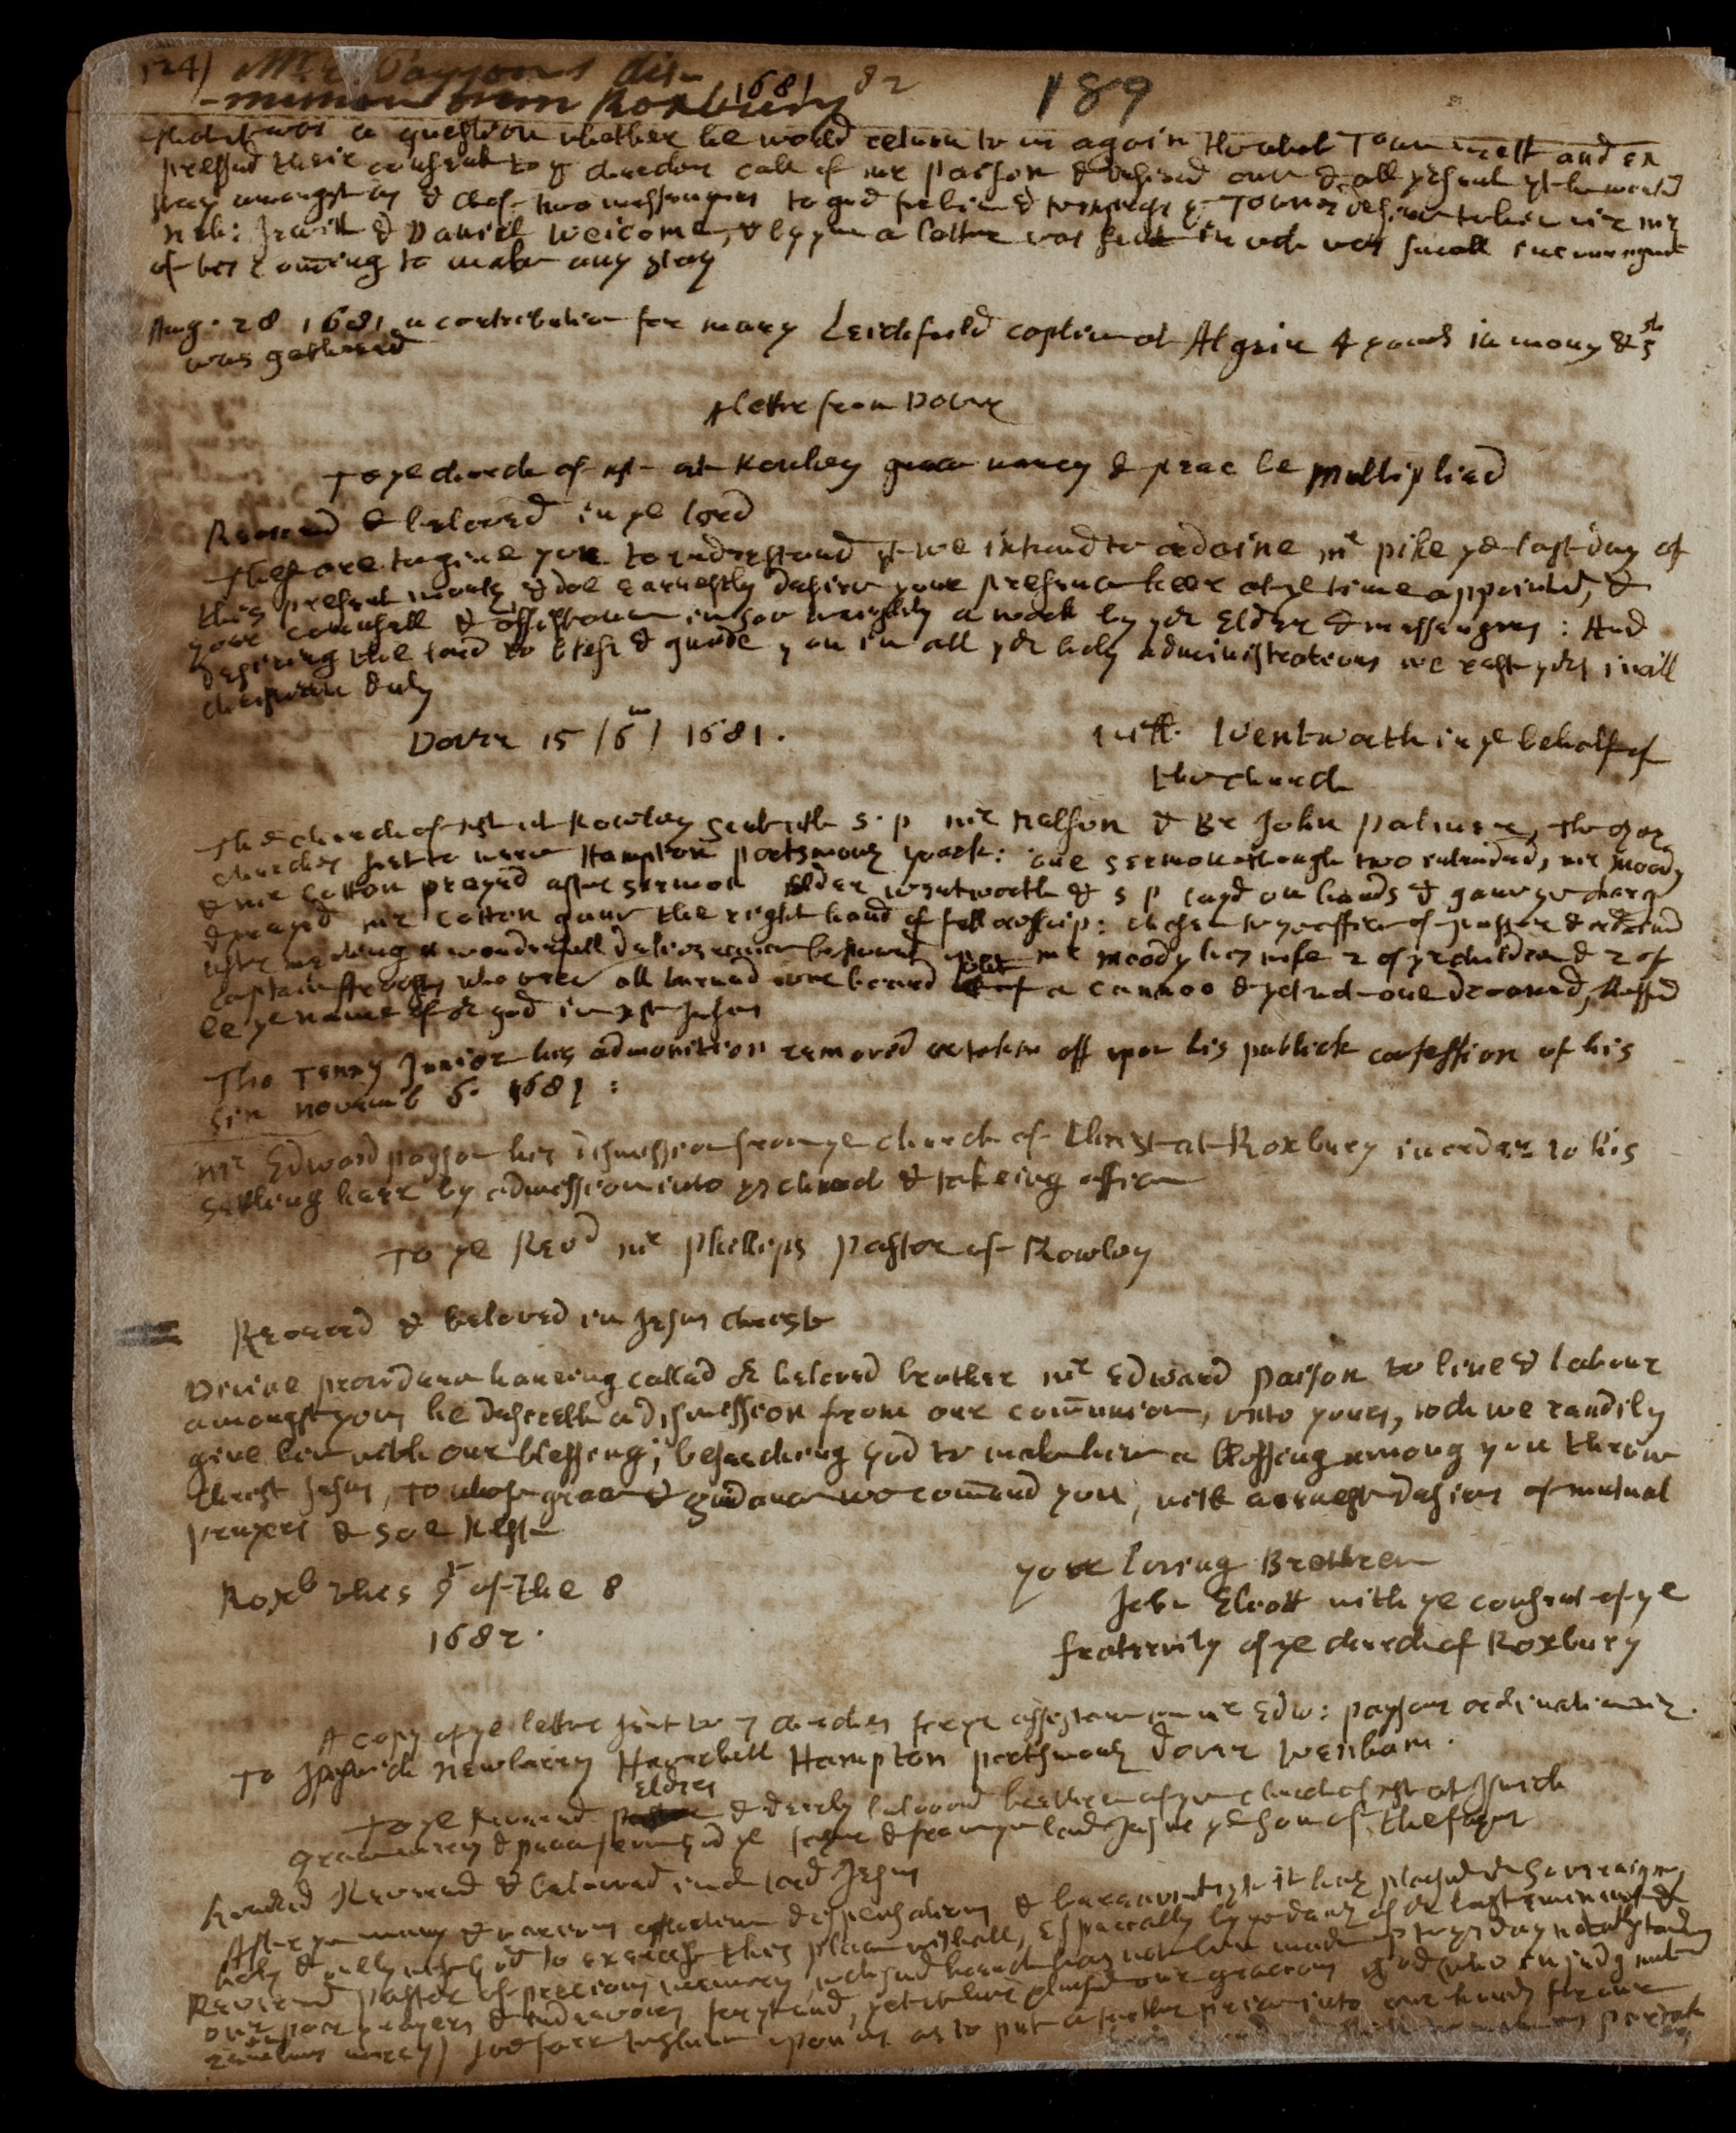 124) Mr Paysons dis-
-mission from Roxbury 1681 82
189
that it was a question whether he would return to us again the whole Town mett and ex
pressed their consent to ye church call of mr paison & desired one & all present yt he would
stay amongst us & chose two messengers to & Town desire to him viz mr
Neh: Jewitt & Daniell Weicome, & by ym a letter was sent in wch was small incouragmt
of his coming to make any stay
Aug: 28 1681 a contribution for mary Leichfield captive at Algeir 4 pound in mony & 5 sh
was gathered
A letter from Dover
To ye church of xt at Rowley grace mercy & peace be multiplied
Reverend & beloved in ye lord
these are to give you to understand yt we intend to ordaine mr pike ye last day of
this present month & doe earnestly desire your presence heer at ye time appointed, &
your counsell & assistance in soe weighty a work by yor Elder & messengers: And
desiring the lord to bless & guide you in all yor holy administrations we rest yors in all
christian duty
Dover 15 /6 m/ 1681.
will Wentworth in ye behalf of
the church
The church of xt at Rowley sent with S. p mr Nelson & Br John palmer, the other
churches sent to were Hampton portsmouth yoark: one sermon though two intended, mr moody
& mr Cotton prayed after sermon Elder wentworth & S p layd on hands & gave ye charg
& prayed mr Cotton gave the right hand of fellowship: chosen to ye office of pastor & ordained
after meeting a wonderfull deliverance mr moody his wife 2 of yr children & 2 of
captain who were all turned over board out of a cannoo & yet not one drowned, blessed
be ye name of or god in xt Jesus
Tho Tenny Junior his admonition removed or taken off upon his publick confession of his
sin novemb 6. 1681:
mr Edward payson his dismission from ye church of Christ at Roxbury in order to his
settling here by admission into yr church & takeing office
To ye Revd mr phillips pastor of Rowley
Reverend & beloved in Jesus christ
Divine providence haueing called or beloved brother mr Edward paison to live & labour
amongst you, he desireth a dismission from our comunion, unto yours, wch we readily
give him with our blessing; beseeching god to make him a blessing among you throw
christ Jesus, to whose grace & guidance we comend you, with earnest desires of mutual
prayers & soe Rest
your loving Brethren
Roxb this of the 8
1682.
John Eliott with ye consent of ye
fraternity of ye church of Roxbury
A copy of ye letter sent to 7 churches for yr assistance in mr Edw: payson ordination viz.
To Ipswich newberry Haverhill Hampton portsmouth Dover wenham.
To ye Reverend Elders & dearly beloved brethren of ye church of xt at Ipswich
grace mercy & peace from god ye father & from ye lord Jesus ye son of the father
Reverend & beloved in or lord Jesus
After ye many & various afflictive dispensations & yt it hath pleased the Sovereigne,
holy & only wise god to exercise this place withall, Especially by ye death of or last eminent &
Reverend pastor of precious memory, hath not been made up to ys day notwithstanding
our poor prayers & indeavors for yt end, yet it hath pleased our gracious god (who in judgment
remembers mercy) upon us as to put a further price into our hands